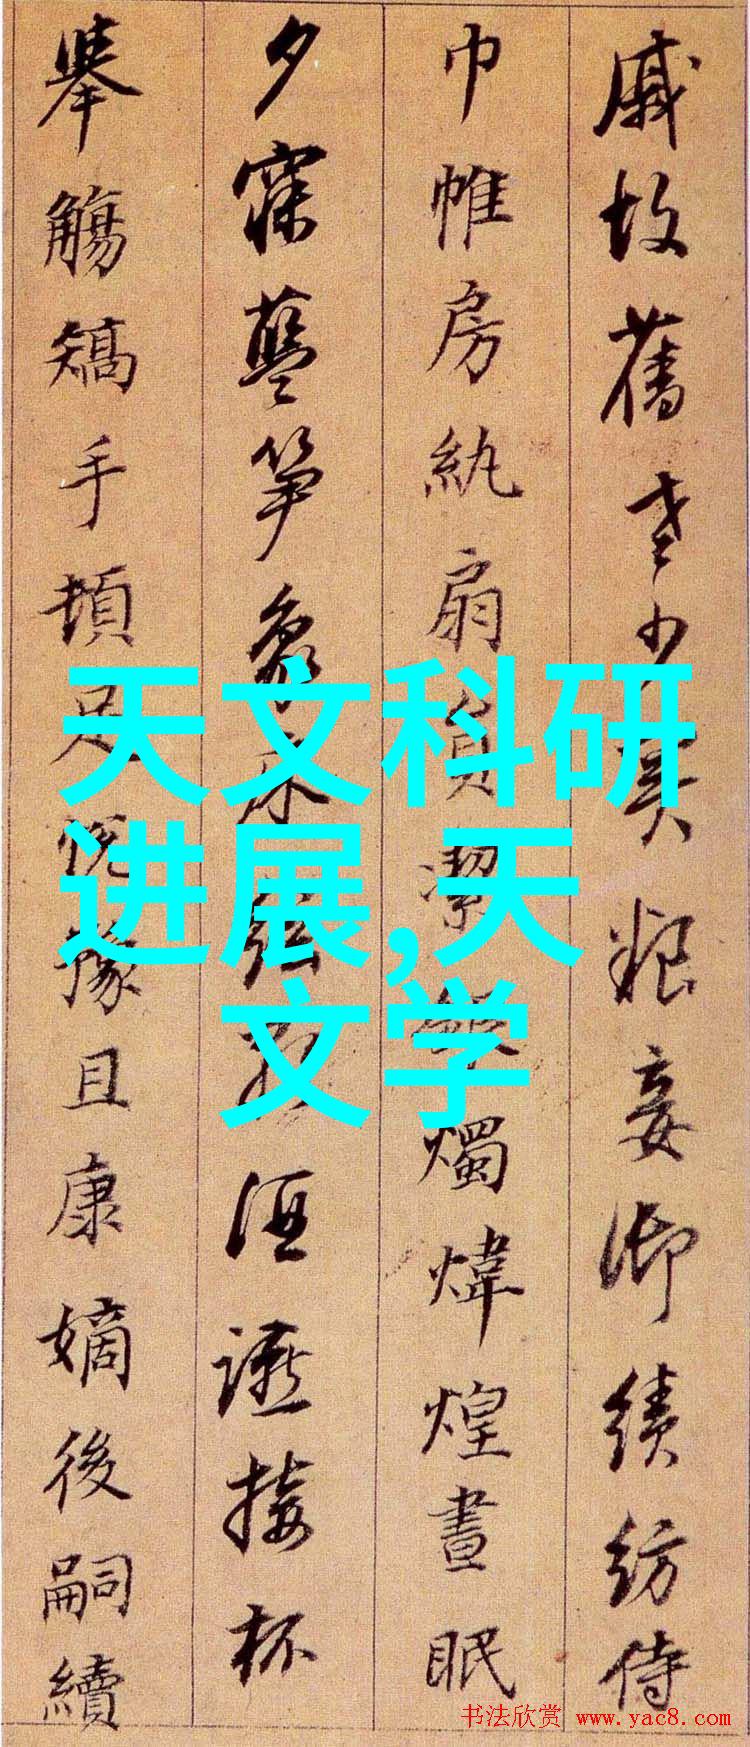 戚故舊老少異粮妾御績紡侍
巾帷房紈扇員潔銀燭煒煌晝眠
夕寐藍笋象床弦歌酒讌接杯
舉觴矯手頓足悅豫且康嫡後嗣續
天文科研
进展,天
文学
书法欣赏 www.yac8.com